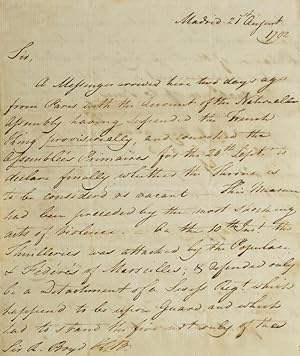 Madrid 21st August
1792
Sir,
A Messenger arrived here two days ago
from Paris with the Account of the National
Assembly having suspended the French
King provisionally, and convoked the
Assemblées Primaires for the 20th Septr to
declare finally whether the Throne is
to be considered as vacant This Measure
had been preceded by the most shocking
acts of violence. On the 10th Inst. the
Thuilleries was attacked by the Populace
& Féderés of Marseilles, & defended only
by a Detachment of a Swiss Regt. which
happened to be upon Guard and which
had to stand the fire not only of the
Sir R. Boyd K.B.